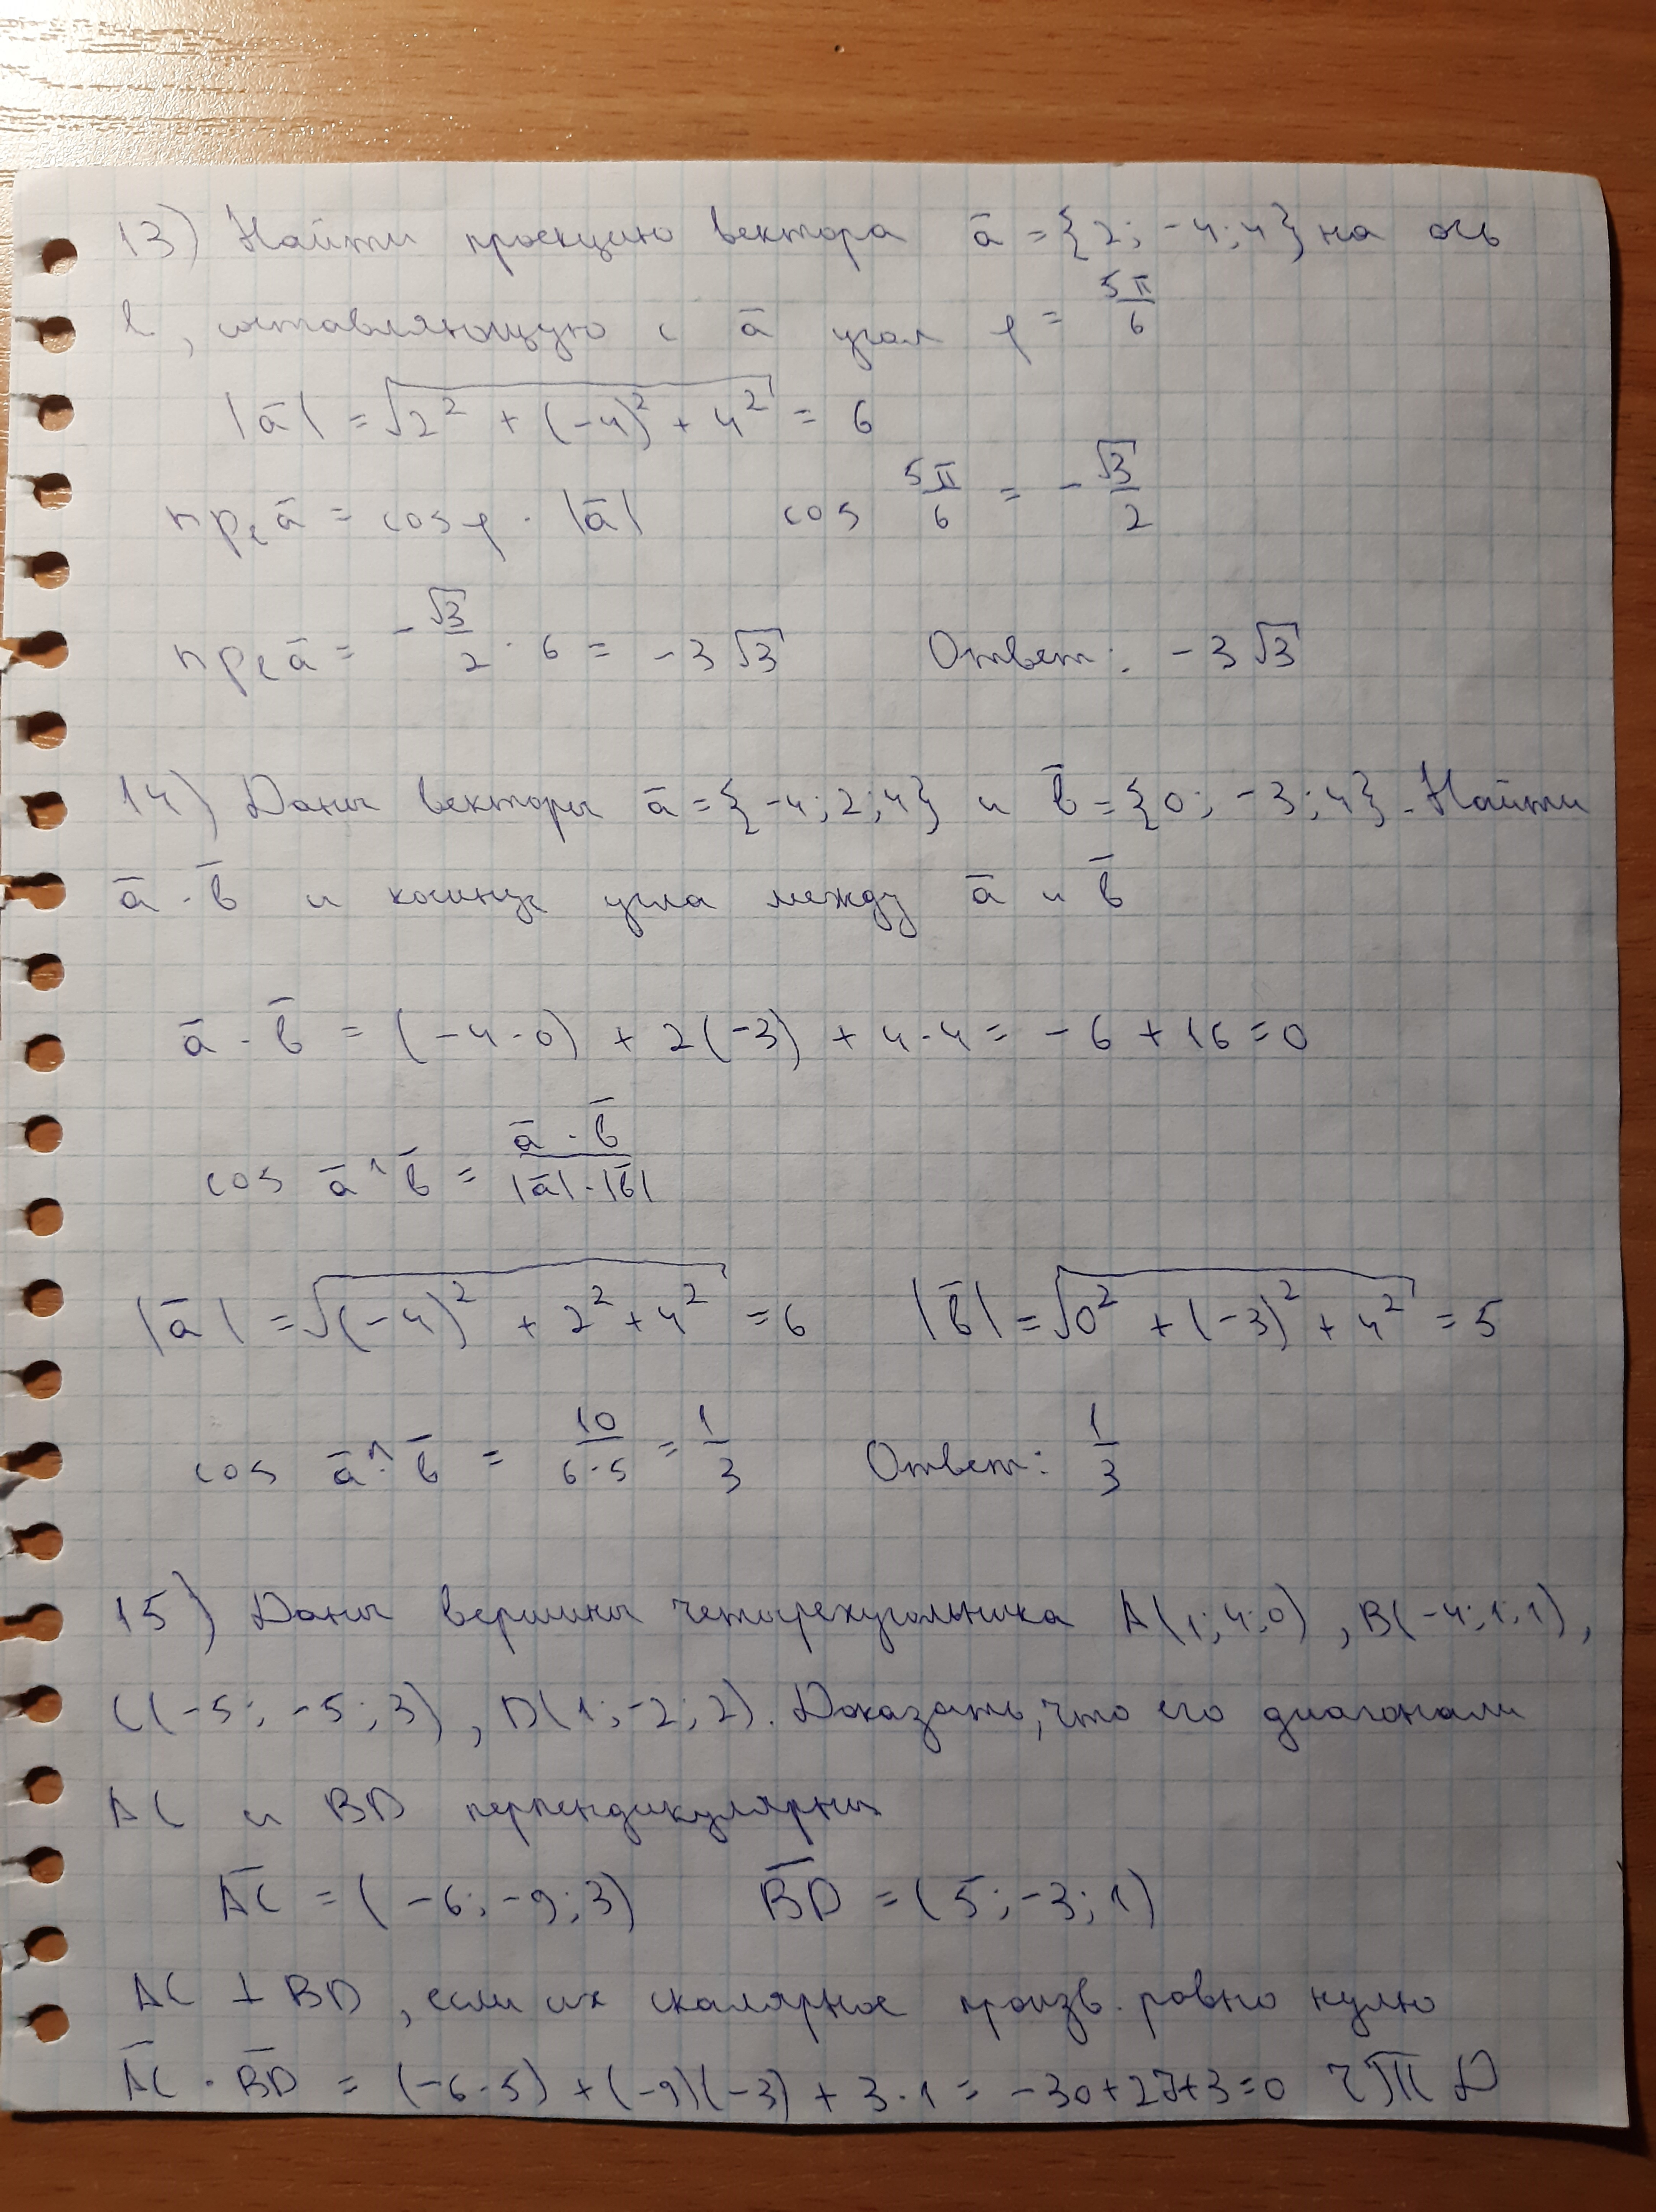 13) Найти проекцию вектора a̅ = {2; -4; 4} на ось
l, составляющую с a̅ угол φ = 5π/6
|a̅| = √(2² + (-4)² + 4²) = 6
пр_l a̅ = cos φ · |a̅|    cos 5π/6 = -√3/2
пр_l a̅ = -√3/2 · 6 = -3√3    Ответ: -3√3
14) Даны векторы a̅ = {-4; 2; 4} и b̅ = {0; -3; 4}. Найти
a̅ · b̅ и косинус угла между a̅ и b̅
a̅ · b̅ = (-4·0) + 2(-3) + 4·4 = -6 + 16 = 0
cos a̅^b̅ = a̅ · b̅ / |a̅|·|b̅|
|a̅| = √((-4)² + 2² + 4²) = 6    |b̅| = √(0² + (-3)² + 4²) = 5
cos a̅^b̅ = 10/6·5 = 1/3    Ответ: 1/3
15) Даны вершины четырехугольника A(1; 4; 0), B(-4; 1; 1),
C(-5; -5; 3), D(1; -2; 2). Доказать, что его диагонали
AC и BD перпендикулярны
A̅C̅ = (-6; -9; 3)    B̅D̅ = (5; -3; 1)
AC ⊥ BD, если их скалярное произв. равно нулю
A̅C̅ · B̅D̅ = (-6·5) + (-9)(-3) + 3·1 = -30+27+3=0 ЧТД